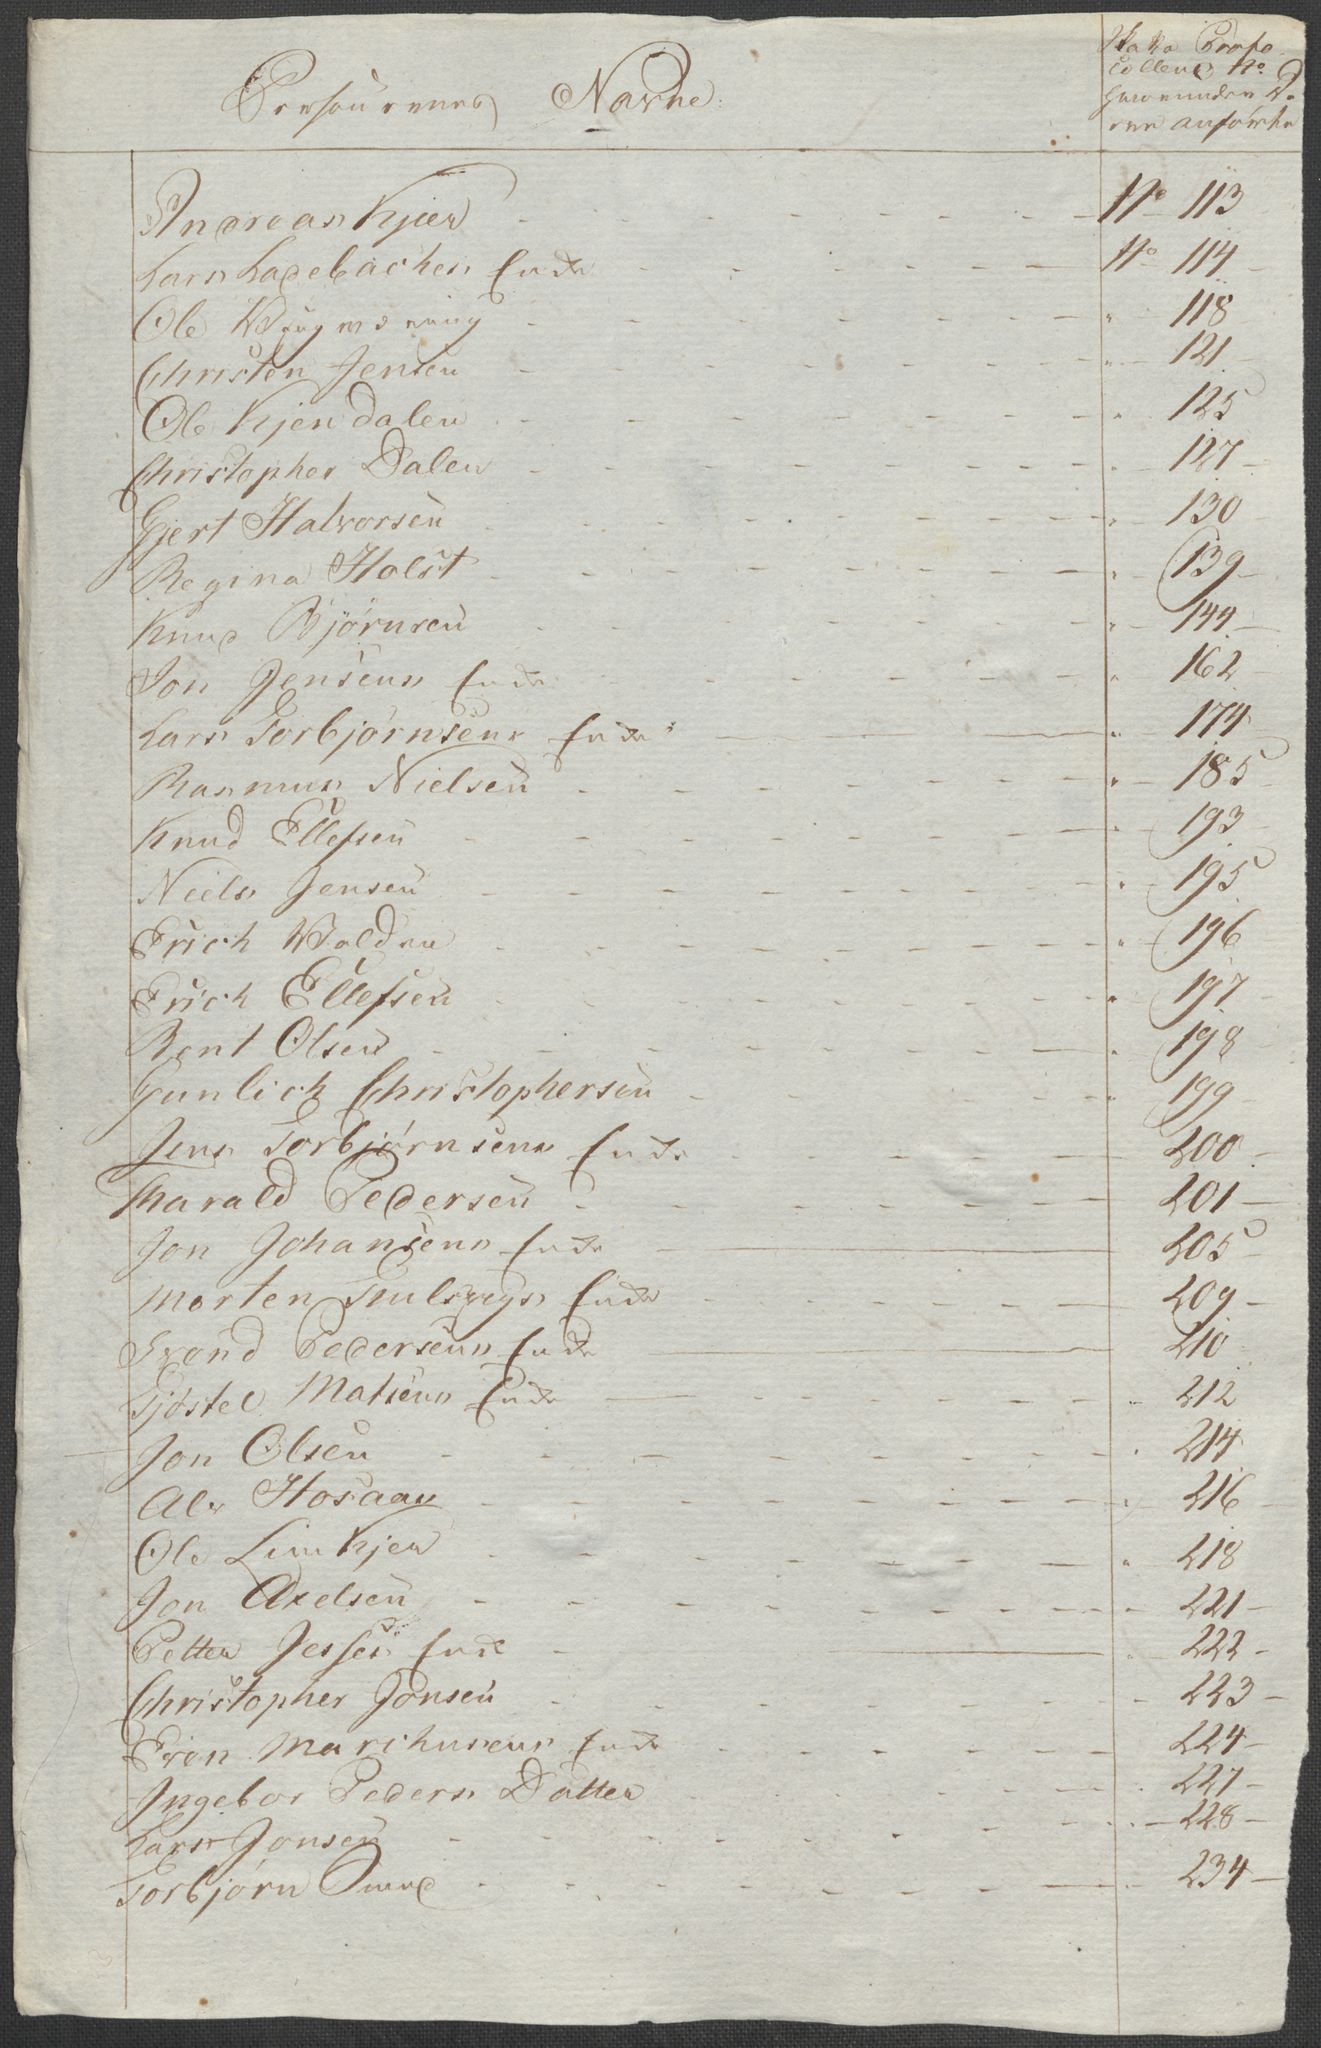 Personernes Navne:
No
Andreas Kjær No 113
Lars Ladebachen Enke No 114
Ole 118
Christen Jensen 121
Ole Kjendalen 125
Christopher Dalen 127
Gjert Halvorsen 130
Regina Holst 139
Knud Bjørnsen 144
Jon Jensens Enke 162
Lars Torbjørnsens Enke 174
Rasmus Nielsen 185
Knud Ellefsen 193
Niels Jensen 195
Erich Wolden 196
Erich Ellefsen 197
Bent Olsen 198
Gunlich Christophersen 199
Jens Torbjørnsens Enke 200
Harald Pedersen 201
Jon Johansens Enke 205
Morten Enke 209
Svend Pedersens Enke 210
Gjøstel Matsens Enke 212
Jon Olsen 214
Alv Hosaas 216
Ole Limkjer 218
Jon Axelsen 221
Petter Enke 222
Christopher Jonsen 223
Even Enke 224
Ingebor Peders Datter 227
Lars Jonsen 228
Torbjørn 234